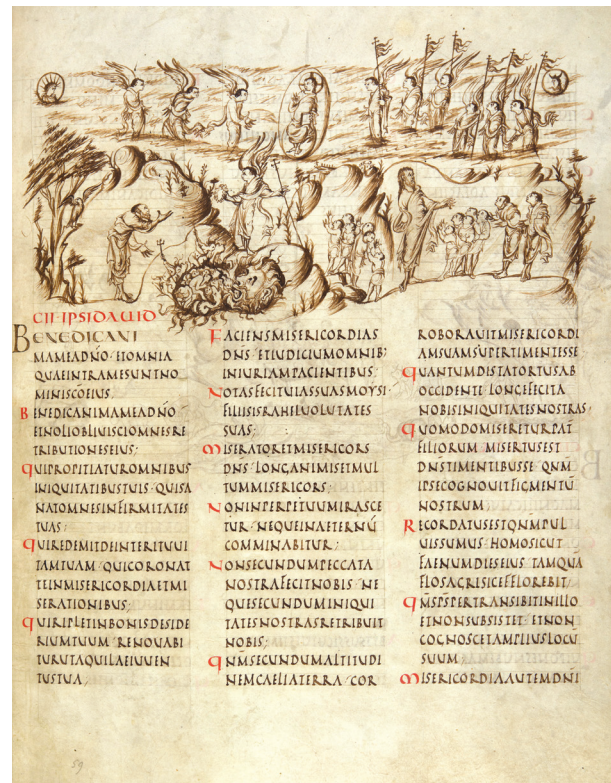 CII IPSI DAUID
BENEDICANI
MAMEADNO ETOMNIA
QUAEINTRAMESUNTNO
MINISCOEIUS·
BENEDICANIMAMEADNO
ETNOLIOBLIUISCIOMNESRE
TRIBUTIONESEIUS·
QUIPROPITIATUROMNIBUS
INIQUITATIBUSTUIS· QUISA
NATOMNESINFIRMITATES
TUAS;
QUIREDEMITDEINTERITUUI
TAMTUAM· QUICORONAT
TEINMISERICORDIAETMI
SERATIONIBUS;
QUIREPLETINBONISDESIDE
RIUMTUUM· RENOUABI
TURUTAQUILAEIUUEN
TUSTUA;
FACIENSMISERICORDIAS
DNS· ETIUDICIUMOMNIB;
INIURIAMPACIENTIBUS;
NOTASFECITUIASSUASMOYSI·
FILIISISRAHELUOLUTATES
SUAS;
MISERATORETMISERICORS
DNS· LONGANIMISETMUL
TUMMISERICORS;
NONINPERPETUUMIRASCE
TUR· NEQUEINAETERNU
COMMINABITUR;
NONSECUNDUMPECCATA
NOSTRAFECITNOBIS· NE
QUESECUNDUMINIQUI
TATESNOSTRASRETRIBUIT
NOBIS;
QNMSECUNDUMALTITUDI
NEMCAELIATERRA· COR
ROBORAUITMISERICORDI
AMSUAMSUPERTIMENTESSE
QUANTUMDISTATORTUSAB
OCCIDENTE· LONGEFECITA
NOBISINIQUITATESNOSTRAS;
QUOMODOMISERETURPAT
FILIORUM· MISERTUSEST
DNSTIMENTIBUSSE· QNM
IPSECOGNOUITFIGMENTU
NOSTRUM
RECORDATUSESTQNMPUL
UISSUMUS· HOMOSICUT
FAENUMDIESEIUS· TAMQUA
FLOSAGRISICEFFLOREBIT;
QMSPSPERTRANSIBITINILLO
ETNONSUBSISTET· ETNON
COGNOSCETAMPLIUSLOCU
SUUM;
MISERICORDIAAUTEMDNI
59